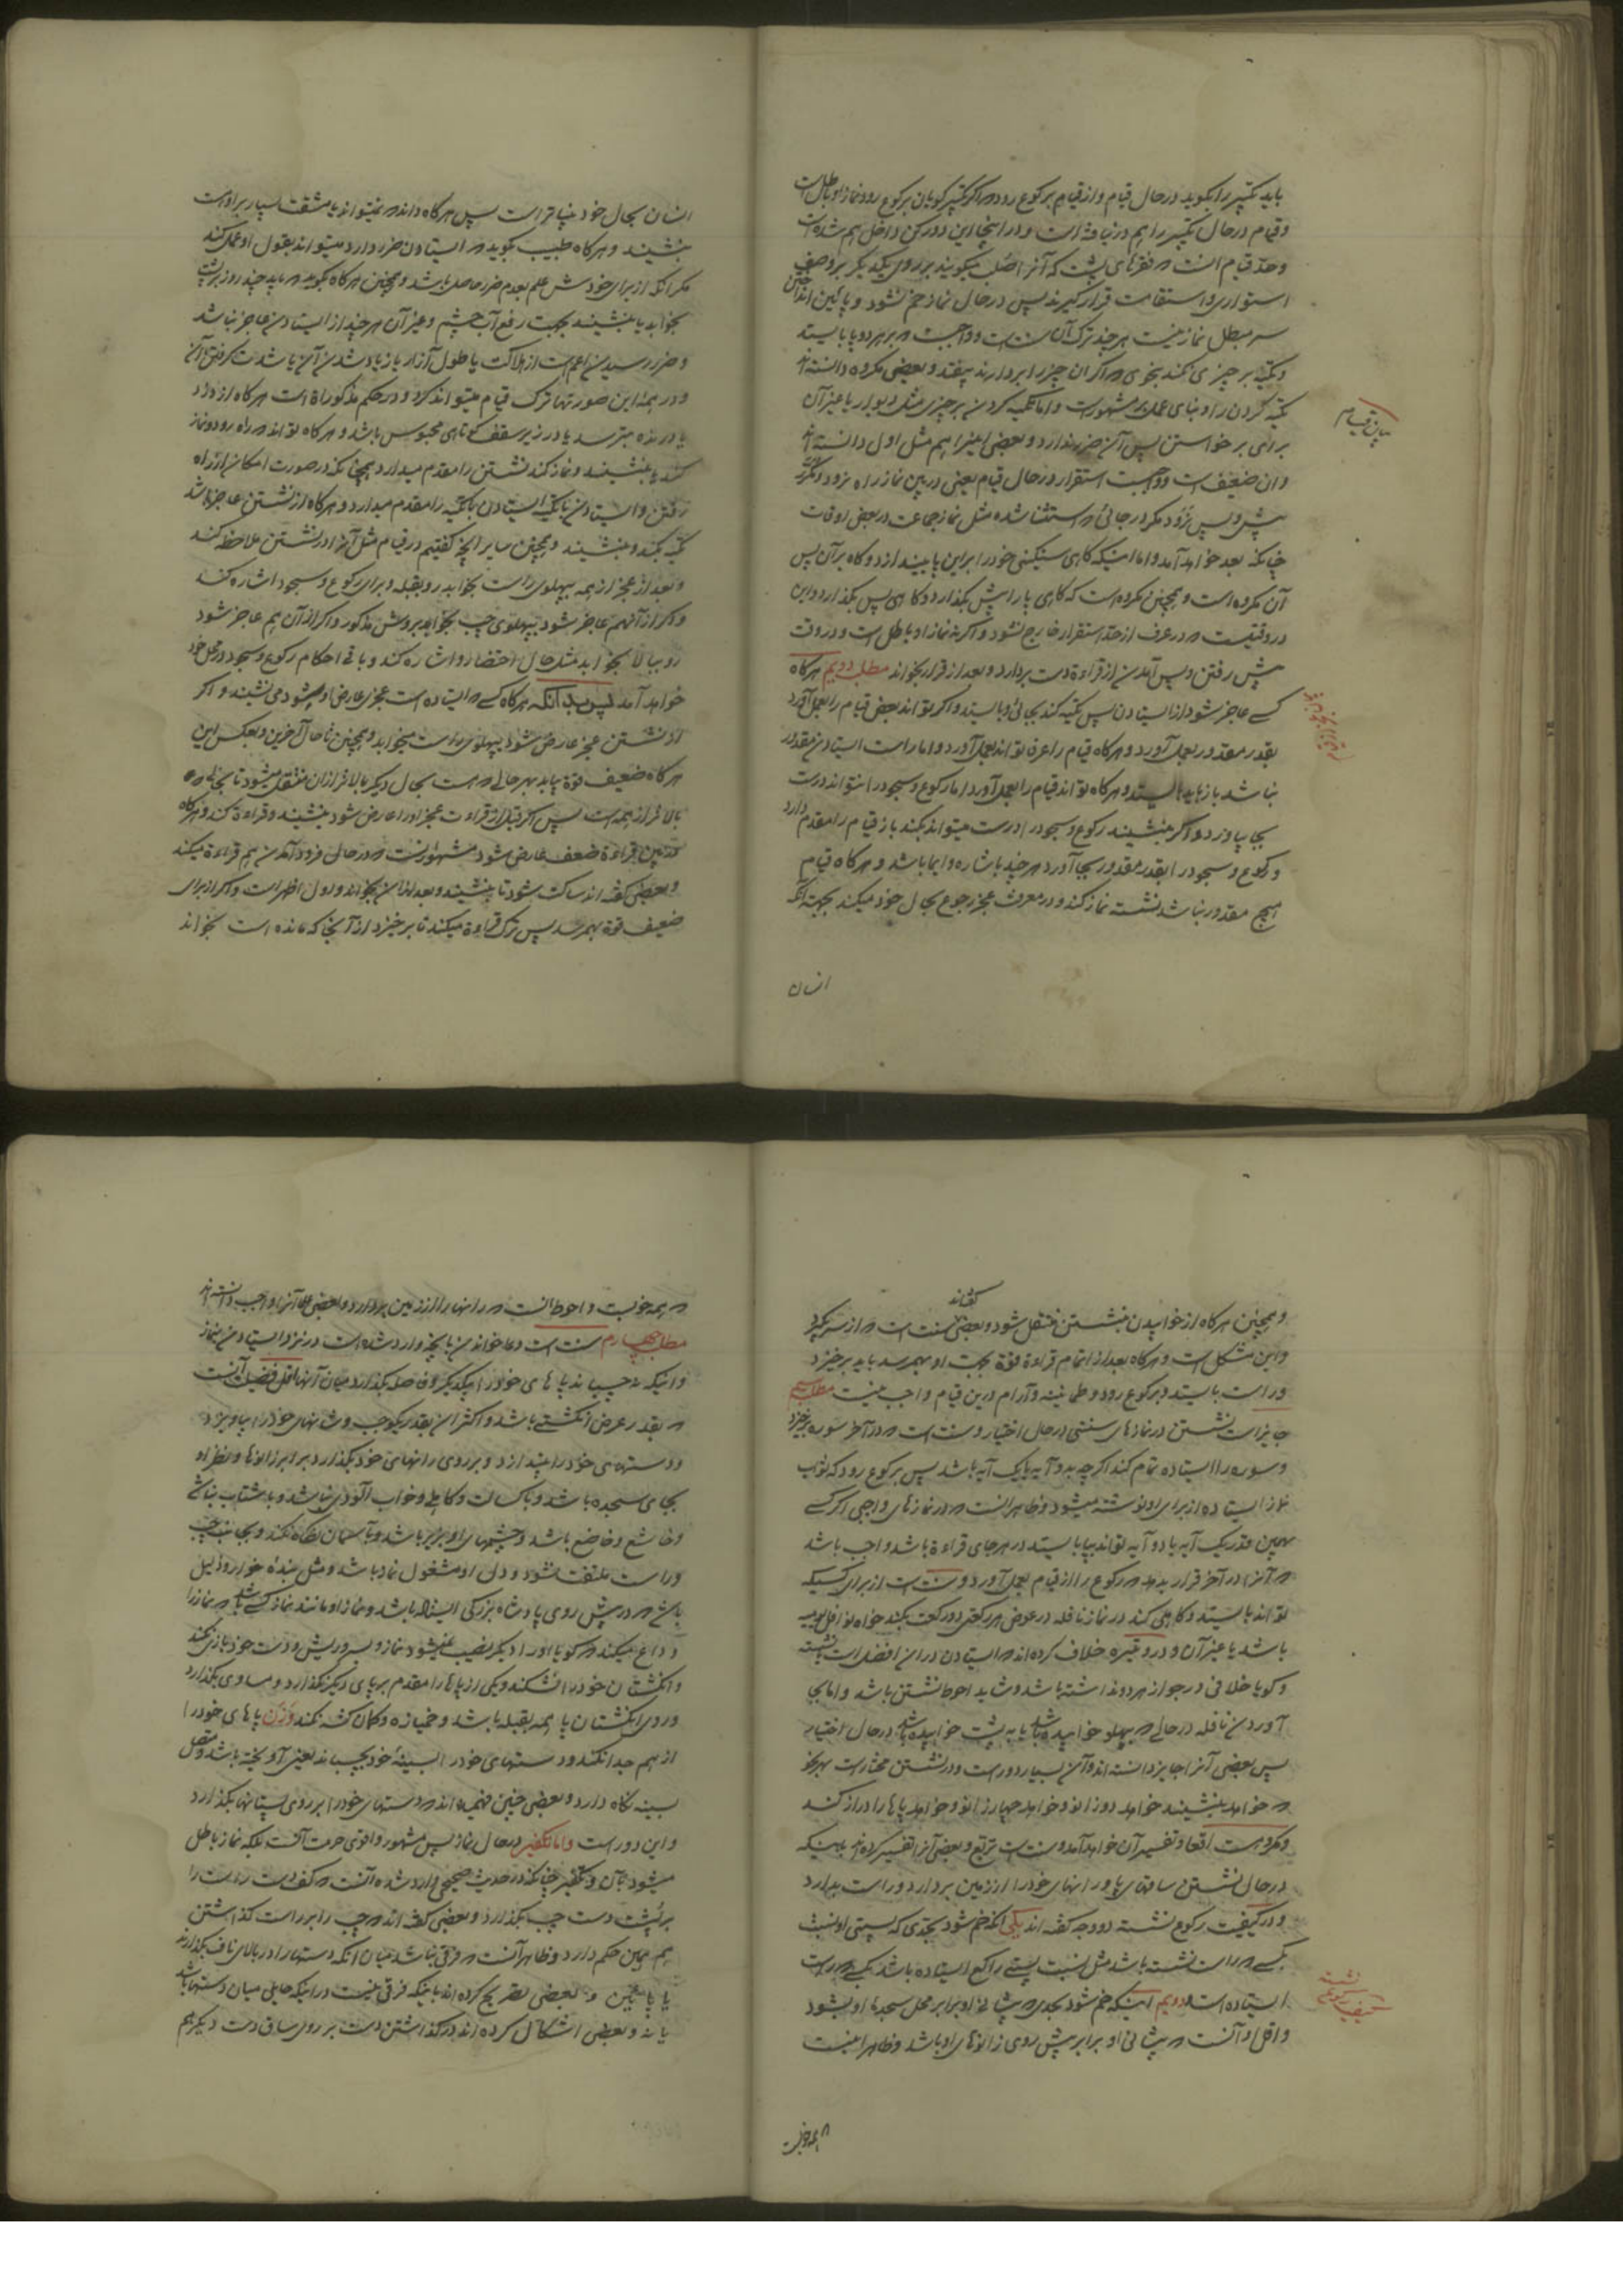 باید تکبیر را بگوید در حال قیام و از قیام برکوع رود و اگر تکبیر گویان برکوع رود نماز او باطل است
و قیام در حال تکبیر را هم در نیافته است و در اینجا این دو رکن داخل هم شده است
وحد قیام آنست که فقرهای پشت که آنرا صلب میگویند بر روی یکدیگر بر وصف
استواری و استقامت قرار گیرند پس در حال نماز خم نشود و پائین انداختن
سر مبطل نماز نیست هر چند ترک آن سنت است و واجبست که بر هر دو پا بایستد
و تکیه بر چیزی نکند بنحوی که اگر آن چیز را بردارند بیفتد و بعضی مکروه دانسته‌اند
تکیه کردن را و بنای عمل بر مشهور است و اما تکیه کردن بر چیزی مثل دیوار یا غیر آن
برای برخواستن پس آن ضرر ندارد و بعضی اینرا هم مثل اول دانسته‌اند
و آن ضعیف است و واجبست استقرار در حال قیام یعنی در بین نماز راه نرود و مگر
پیش و پس نرود مگر در جائی که استثنا شده مثل نماز جماعت در بعض اوقات
چنانکه بعد خواهد آمد و اما اینکه گاهی سنگینی خود را بر این پا بیندازد و گاه بر آن پس
آن مکروه است و همچنین مکروه است که گاهی پا را پیش بگذارد و گاهی پس بگذارد و این
در وقتیست که در عرف از حد استقرار خارج نشود و اگر نه نماز او باطل است و در وقت
پیش رفتن و پس آمدن از قراءة دست بردارد و بعد از قرار بخواند مطلب دویم هرگاه
کسے عاجز شود از ایستادن پس تکیه کند بجائی و بایستد و اگر تواند بعض قیام را بعمل آورد
بقدر مقدور بعمل آورد و هرگاه قیام را عرفا تواند بعمل آورد و اما راست ایستادن مقدور
نباشد باز باید بایستد و هرگاه تواند قیام را بعمل آورد اما رکوع و سجود را نتواند درست
بجا بیاورد و اگر بنشیند رکوع و سجود را درست میتواند بکند باز قیام را مقدم دارد
و رکوع و سجود را بقدر مقدور بجا آورد هر چند باشاره و ایما باشد و هرگاه قیام
هیچ مقدور نباشد نشسته نماز کند و در معرفت عجز رجوع بحال خود میکند بجهت آنکه
انسان
بیان قیام
انسان بحال خود بیناتر است پس هرگاه داند که نمیتواند یا مشقت بسیار بر او است
بنشیند و هرگاه طبیب بگوید که ایستادن ضرر دارد میتواند بقول او عمل کند
مگر آنکه از برای خودش علم بعدم ضرر حاصل باشد و همچنین هرگاه بگوید که باید چند روز بر پشت
بخوابد یا بنشیند بجهت رفع آب چشم و غیر آن هر چند از ایستادن عاجز نباشد
و ضرر رسیدن اعم است از هلاکت یا طول آزار یا زیاد شدن آن یا شدت گرفتن آن
و در همه این صورتها ترک قیام میتواند کرد و در حکم مذکورات است هرگاه از دزد
یا درنده بترسد یا در زیر سقف کوتاهی محبوس باشد و هرگاه تواند که راه رود و نماز
کند یا بنشیند و نماز کند نشستن را مقدم میدارد همچنانکه در صورت امکان از راه
رفتن و ایستادن با تکیه ایستادن با تکیه را مقدم میدارد و هرگاه از نشستن عاجز باشد
تکیه بکند و بنشیند و همچنین سایر آنچه گفتیم در قیام مثل آنرا در نشستن ملاحظه کند
و بعد از عجز از همه بپهلوی راست بخوابد رو بقبله و برای رکوع و سجود اشاره کند
و اگر از آنهم عاجز شود بپهلوی چپ بخوابد بروش مذکور و اگر از آن هم عاجز شود
رو ببالا بخوابد مثل حال احتضار و اشاره کند و باقی احکام رکوع و سجود در محل خود
خواهد آمد پس بدانکه هرگاه کسے که ایستاده است عجزی عارض او بشود می نشیند و اگر
از نشستن عجز عارض شود بپهلوی راست میخوابد و همچنین تا حال آخرین و بعکس این
هرگاه ضعیف قوة بیابد بهر حالی که هست بحال دیگر بالاتر از آن منتقل میشود تا بحالی که
بالاتر از همه است پس اگر قبل از قراءت عجز او را عارض شود بنشیند و قراءة کند و هرگاه
در بین قراءة ضعف عارض شود مشهور آنست که در حال فرود آمدن هم قراءة میکند
و بعضی گفته‌اند ساکت شود تا بنشیند و بعد از آن بخواند و اول اظهر است و اگر از برای
ضعیف قوة بهمرسد پس ترک قراءة میکند تا برخیزد از آنجا که مانده است بخواند
و همچنین هرگاه از خوابیدن بنشستن منتقل شود و بعضی گفته‌اند سنت است که از سر بگیرد
و این مشکل است و هرگاه بعد از اتمام قراءة قوة بجهت او بهمرسد باید برخیزد
و راست بایستد و برکوع رود و طمانینه و آرام در این قیام واجب نیست مطلب سیم
جایز است نشستن در نمازهای سنتی در حال اختیار و سنت است که در آخر سوره برخیزد
و سوره را ایستاده تمام کند اگر چه بدو آیه یا یک آیه باشد پس برکوع رود که ثواب
نماز ایستاده از برای او نوشته میشود و ظاهر آنست که در نمازهای واجبی اگر کسے
همین قدر یک آیه یا دو آیه تواند بپا بایستد در هر جای قراءة باشد واجب باشد
که آنرا در آخر قرار بدهد که رکوع را از قیام بعمل آورد و سنت است از برای کسیکه
تواند بایستد و کاهلی کند در نماز نافله در عوض هر رکعتی دو رکعت بکند خواه نوافل یومیه
باشد یا غیر آن و در وتیره خلاف کرده‌اند که ایستادن در آن افضل است یا نشسته
و گویا خلافی در جواز هر دو نداشته باشد و شاید احوط نشستن باشد و اما بجا
آوردن نافله در حالی که بپهلو خوابیده باشد یا به پشت خوابیده باشد در حال اختیار
پس بعضی آنرا جایز دانسته‌اند و آن بسیار دور است و در نشستن مختار است بهر نحو
که خواهد بنشیند خواهد دو زانو و خواهد چهار زانو و خواهد پاها را دراز کند
و مکروهست اقعا و تفسیر آن خواهد آمد و سنت است تربّع و بعضی آنرا تفسیر کرده‌اند باینکه
در حال نشستن ساقهای پا و رانهای خود را از زمین بردارد و راست بدارد
و در کیفیت رکوع نشسته دو وجه گفته‌اند یکی آنکه خم شود بحدی که پستی او نسبت
بکسے که راست نشسته باشد مثل نسبت پستے راکع ایستاده باشد بکسے که راست
ایستاده است دویم اینکه خم شود بحدی که پیشانی او برابر محل سجده او بشود
و اقل او آنست که پیشانی او برابر پیش روی زانوهای او باشد و ظاهر اینست
که همه خوبست
کیفیت رکوع نشسته
که همه خوبست و احوط آنست که رانها را از زمین بردارد و بعضی علما آنرا واجب دانسته‌اند
مطلب چهارم سنت است دعا خواندن بآنچه وارد شده است در نزد ایستادن بنماز
و اینکه نچسباند پاهای خود را بیکدیگر و فاصله بگذارد میان آنها اقل فضیلت آنست
که بقدر عرض انگشتے باشد و اکثر آن بقدر یک وجب و شانهای خود را بیاویزد
و دستهای خود را بیندازد و بر روی رانهای خود بگذارد برابر زانوها و نظر او
بجای سجده باشد و با کسالت و کاهلی و خواب آلودی نباشد و با شتاب نباشے
و خاشع و خاضع باشد و چشمهای او بزیر باشد و بآسمان نگاه نکند و بجانب چپ
و راست ملتفت نشود و دل او مشغول نماز باشد و مثل بندهٔ خوار و ذلیل
باشے که در پیش روی پادشاه بزرگی ایستاده باشد و نماز او مانند نماز کسے باشد که نماز را
وداع میکند که گویا او را دیگر نصیب نمیشود نماز و بسر و ریش و دست خود بازی نکند
و انگشتان خود را نشکند و یکی از پاها را مقدم بر پای دیگر نگذارد و مساوی بگذارد
و روی انگشتان پا همه بقبله باشد و خمیازه و کمان کشه نکند و زن پاهای خود را
از هم جدا نکند و دستهای خود را بسینهٔ خود بچسباند یعنی آویخته باشد و متصل
بسینه نگاه دارد و بعضی چنین فهمیده‌اند که دستهای خود را بر روی پستانها بگذارد
و این دور است و اما تکفیر در حال نماز پس مشهور و اقوی حرمت آنست بلکه نماز باطل
میشود بآن و تکفیر چنانکه در حدیث صحیح وارد شده آنست که کف دست راست را
بر پشت دست چپ بگذارد و بعضی گفته‌اند که چپ را بر راست گذاشتن
هم همین حکم دارد و ظاهر آنست که فرقی نباشد میان آنکه دستها را در بالای ناف بگذارند
یا پائین و بعضی تصریح کرده‌اند باینکه فرقی نیست در اینکه حایلی میان دستها باشد
یا نه و بعضی اشکال کرده‌اند در گذاشتن دست بر روی ساق دست دیگر هم